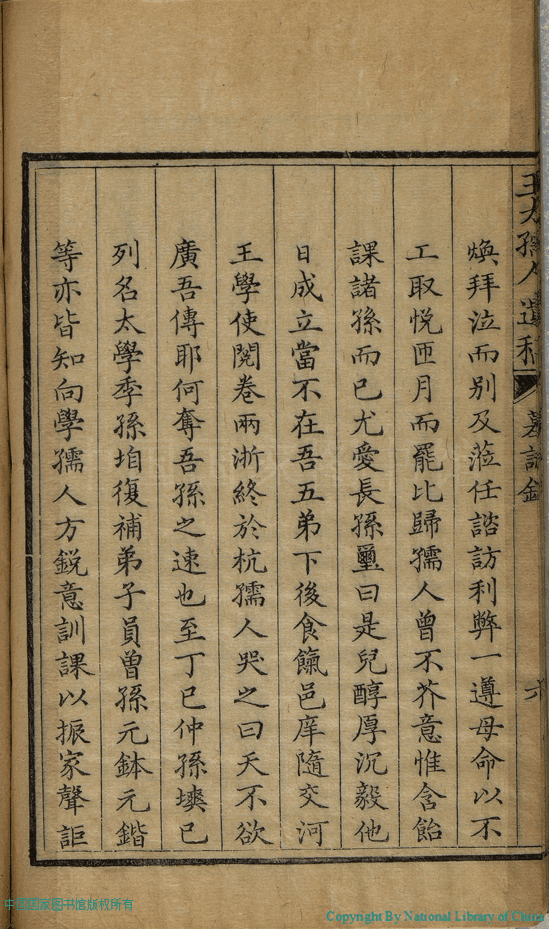 煥拜泣而別及蒞任諮訪利弊一遵母命以不
工取悅匝月而罷比歸孺人曾不芥意惟含飴
課諸孫而已尤愛長孫壐曰是兒醇厚沉毅他
日成立當不在吾五弟下後食餼邑庠隨交河
王學使閱卷兩浙終於杭孺人哭之曰天不欲
廣吾傳耶何奪吾孫之速也至丁巳仲孫㙷已
列名太學季孫垍復補弟子員曾孫元鉢元鍇
等亦皆知向學孺人方銳意訓課以振家聲詎
王太孺人遺稿
墓誌銘
六
中国国家图书馆版权所有
Copyright By National Library of China